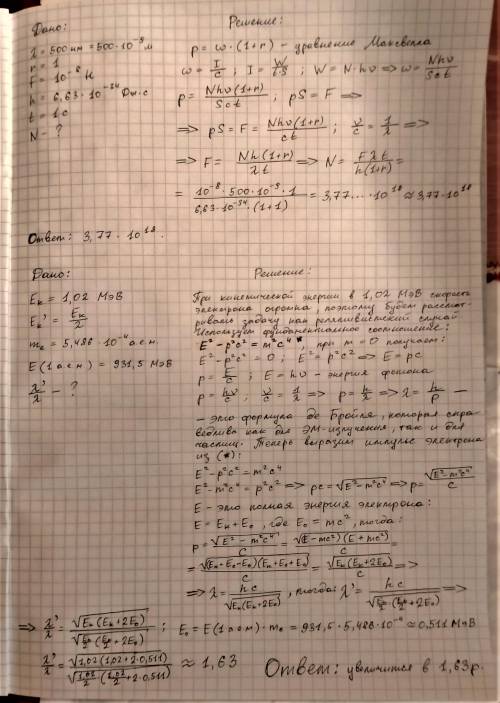 Дано:
λ = 500 нм = 500·10⁻⁹ м
r = 1
F = 10⁻⁸ Н
h = 6,63·10⁻³⁴ Дж·с
t = 1 с
N - ?
Решение:
p = ω·(1+r) - уравнение Максвелла
ω = I/c ; I = W/(t·S) ; W = N·hν ⇒ ω = Nhν/(Sct)
p = Nhν(1+r)/(Sct) ; pS = F ⇒
⇒ pS = F = Nhν(1+r)/(ct) ; ν/c = 1/λ ⇒
⇒ F = Nh(1+r)/(λt) ⇒ N = Fλt/(h(1+r)) =
= (10⁻⁸·500·10⁻⁹·1)/(6,63·10⁻³⁴·(1+1)) = 3,77...·10¹⁸ ≈ 3,77·10¹⁸
Ответ: 3,77·10¹⁸.
Дано:
Eк = 1,02 МэВ
Eк' = Eк/2
mₑ = 5,486·10⁻⁴ а.е.м.
E(1 а.е.м) = 931,5 МэВ
λ'/λ - ?
Решение:
При кинетической энергии в 1,02 МэВ скорость
электрона огромна, поэтому будем рассмат-
ривать задачу как релятивистский случай
Используем фундаментальное соотношение:
E² - p²c² = m²c⁴ *, при m = 0 получаем:
E² - p²c² = 0 ; E² = p²c² ⇒ E = pc
p = E/c ; E = hν - энергия фотона
p = hν/c ; ν/c = 1/λ ⇒ p = h/λ ⇒ λ = h/p —
- это формула де Бройля, которая спра-
ведлива как для ЭМ-излучения, так и для
частиц. Теперь выразим импульс электрона
из (*):
E² - p²c² = m²c⁴
E² - m²c⁴ = p²c² ⇒ pc = √(E² - m²c⁴) ⇒ p = √(E² - m²c⁴)/c
E - это полная энергия электрона:
E = Eк + E₀, где E₀ = mc², тогда:
p = √(E² - m²c⁴)/c = √((E - mc²)(E + mc²))/c =
= √((Eк + E₀ - E₀)(Eк + E₀ + E₀))/c = √(Eк(Eк + 2E₀))/c ⇒
⇒ λ = hc/√(Eк(Eк + 2E₀)), тогда: λ' = hc/√(Eк/2(Eк/2 + 2E₀)) ⇒
⇒ λ'/λ = √(Eк(Eк + 2E₀))/√(Eк/2(Eк/2 + 2E₀)) ; E₀ = E(1 а.е.м)·mₑ = 931,5·5,486·10⁻⁴ ≈ 0,511 МэВ
λ'/λ = √(1,02(1,02 + 2·0,511))/√(1,02/2(1,02/2 + 2·0,511)) ≈ 1,63
Ответ: увеличится в 1,63 р.